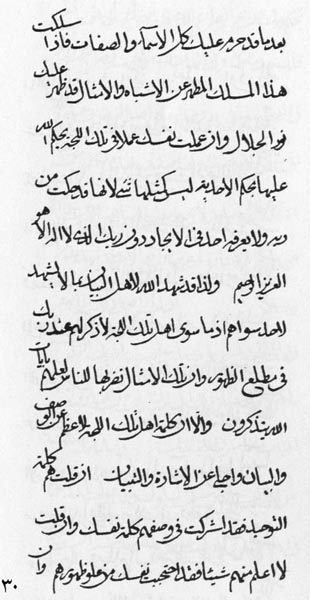 بعد ما قد حرم عليك كل الاسماء والصفات فاذا سلكت
هذا المسلك المطهر عن الاشباه والامثال قد ظهر عليك
نور الجلال وان عملت نفسك عملا في تلك اللجة يحكم الله
عليها بحكم الاحدية ليس كمثلها شيء لانها قد حكت من
ربه ولا يعرفه احد في الايجاد دون ربك الذي لا اله الا هو
العزيز الحكيم ولذا قد شهد الله لاهل البيان بما لا يشهد
لاحد سواهم اذ ما سوى اهل تلك اللجة لا ذكر لهم عند ربك
في مطلع الظهور وان تلك الامثال نضربها للناس لعلهم بايات
الله يتذكرون والا ان كلمة اهل تلك اللجة لاعظم عن الوصف
والبيان واجلى عن الاشارة والتبيان ان قلت هم كلمة
التوحيد فقد اشركت في وصفهم كلمة نفسك وان قلت
لا اعلم منهم شيئا فقد احتجبت نفسك من علو ظهورهم وان
٣٠